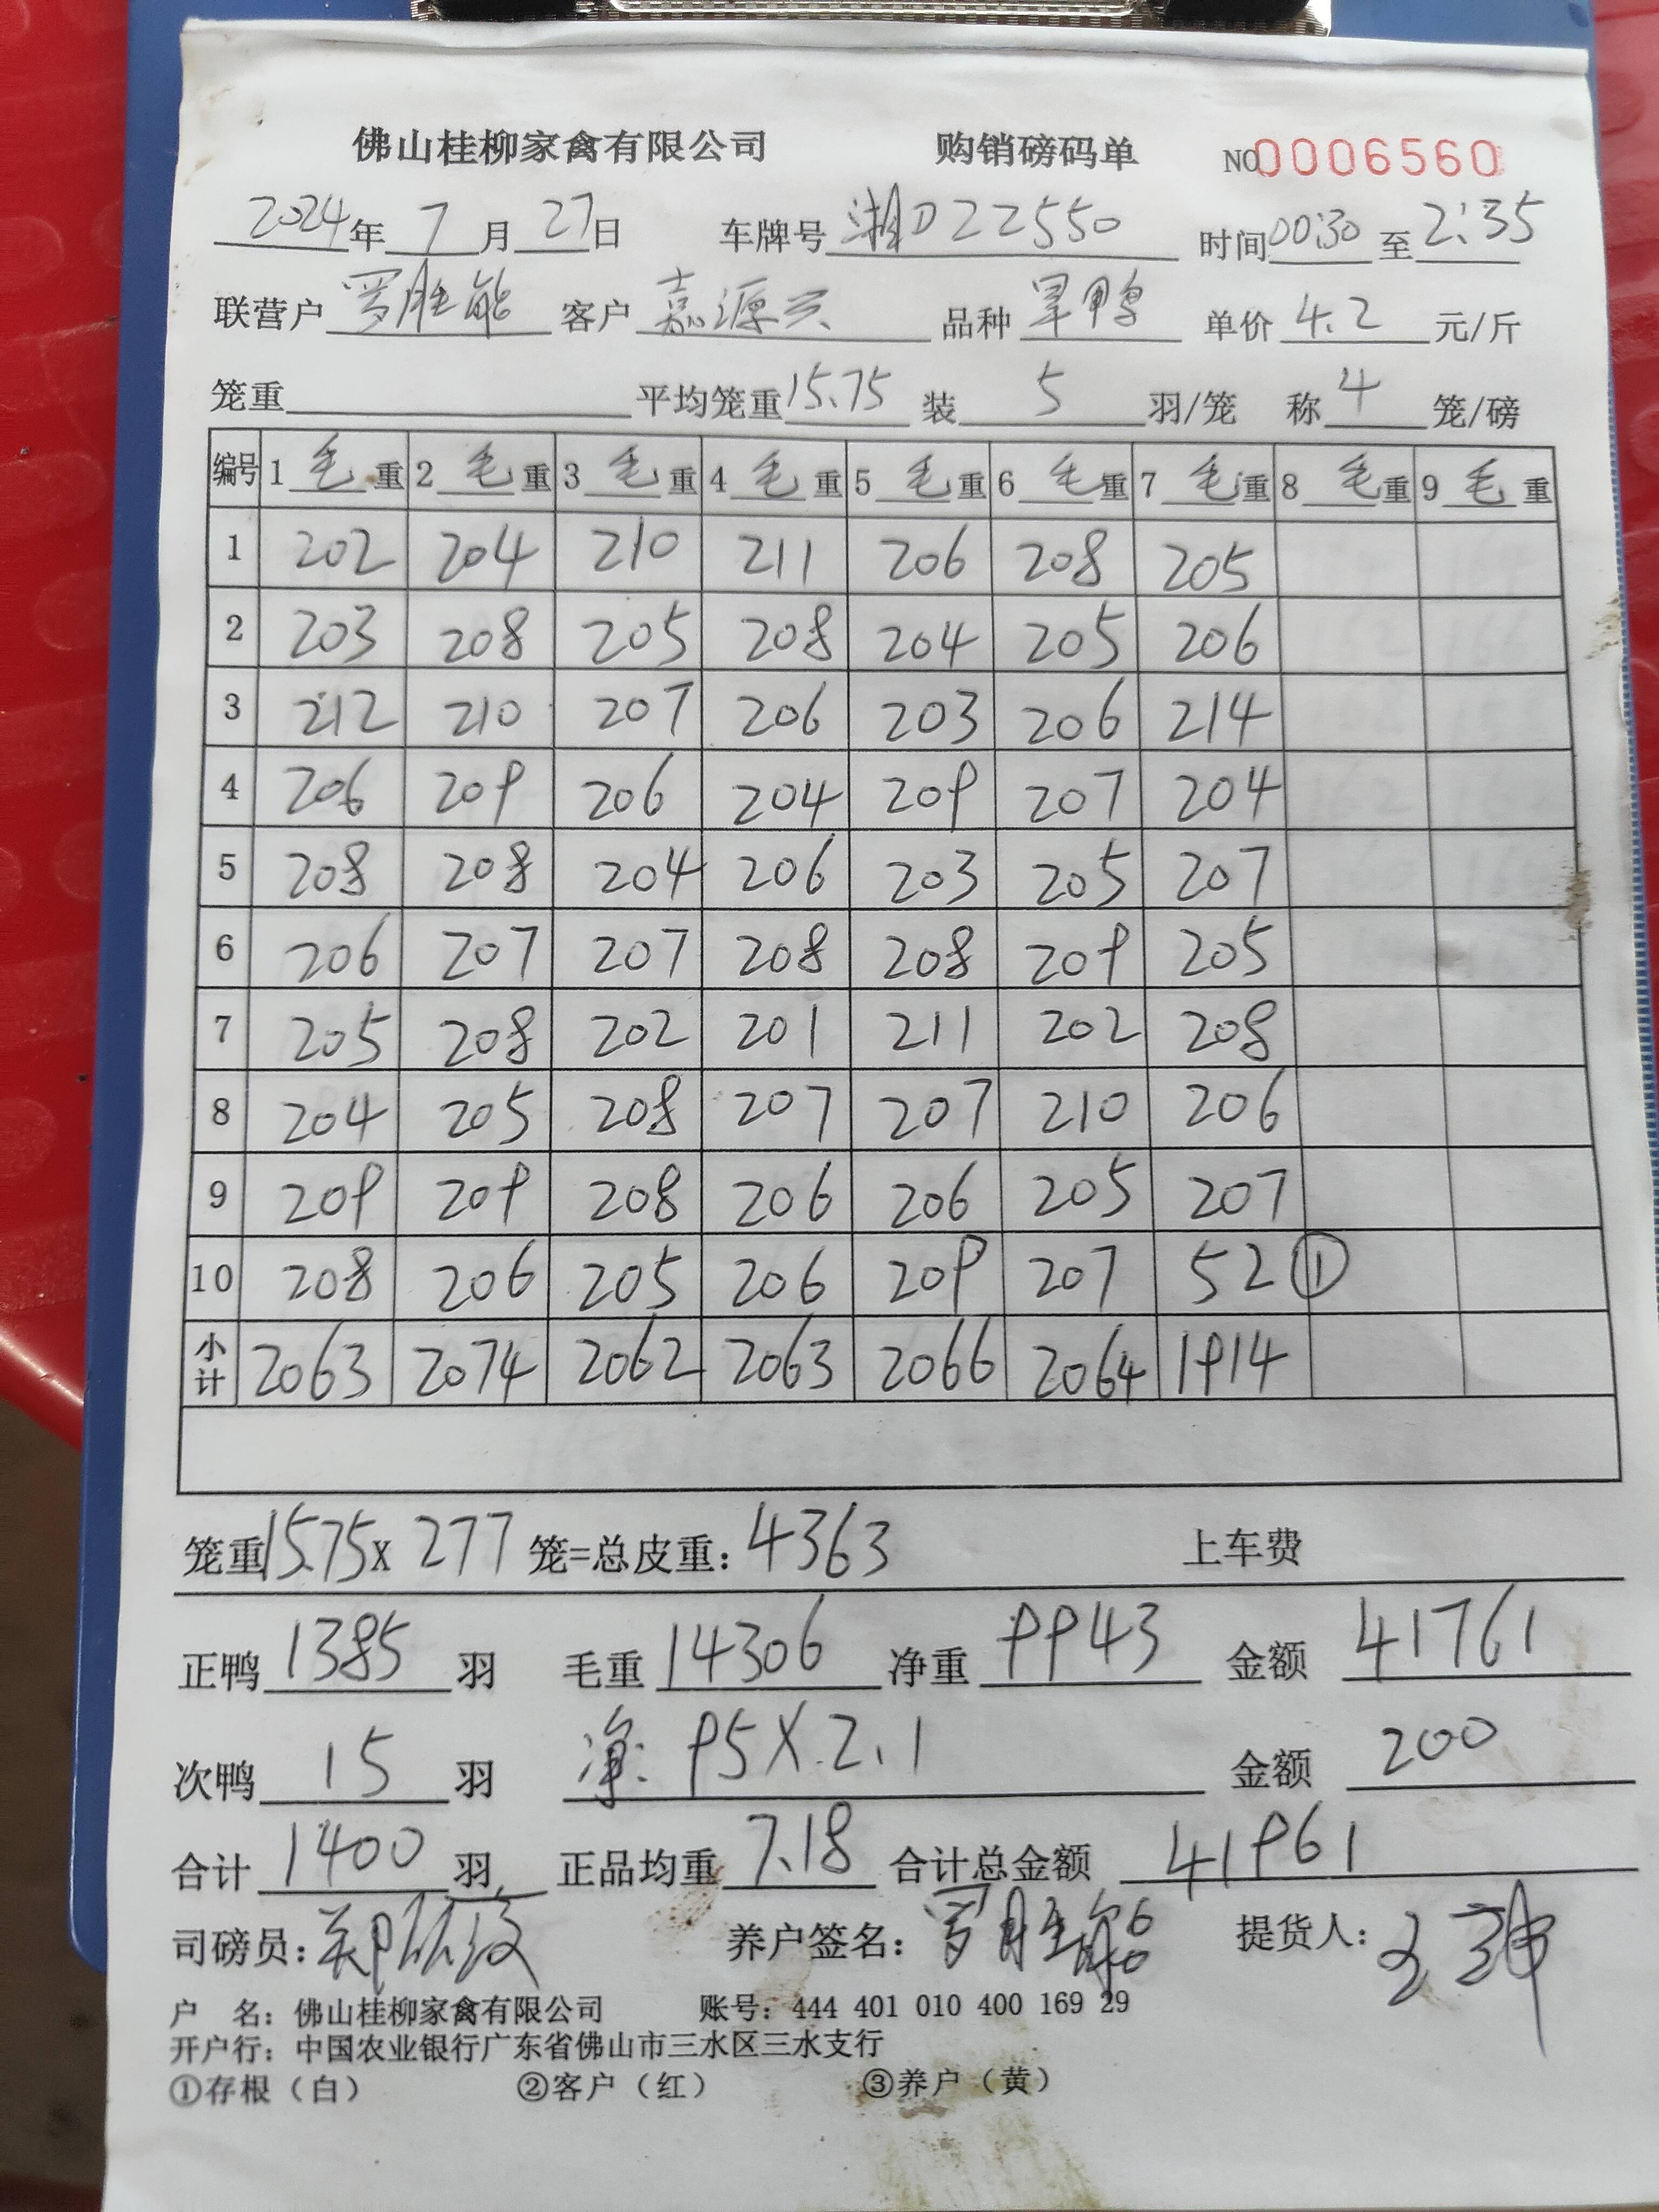 佛山桂柳家禽有限公司 购销磅码单 NO0006560
2024年7月27日 车牌号 湘D22550 时间00:30至2:35
联营户 罗胜能 客户 嘉源兴 品种 旱鸭 单价 4.2 元/斤
笼重 平均笼重15.75 装 5 羽/笼 称 4 笼/磅
编号 1毛重 2毛重 3毛重 4毛重 5毛重 6毛重 7毛重 8毛重 9毛重
1 202 204 210 211 206 208 205
2 203 208 205 208 204 205 206
3 212 210 207 206 203 206 214
4 206 209 206 204 209 207 204
5 208 208 204 206 203 205 207
6 206 207 207 208 208 209 205
7 205 208 202 201 211 202 208
8 204 205 208 207 207 210 206
9 209 209 208 206 206 205 207
10 208 206 205 206 209 207 52 ①
小计 2063 2074 2062 2063 2066 2064 1914
笼重15.75x 277 笼=总皮重:4363 上车费
正鸭 1385 羽 毛重 14306 净重 9943 金额 41761
次鸭 15 羽 净: 95X2.1 金额 200
合计 1400 羽 正品均重 7.18 合计总金额 41961
司磅员: 养户签名:罗胜能 提货人:
户 名:佛山桂柳家禽有限公司 账号:444 401 010 400 169 29
开户行:中国农业银行广东省佛山市三水区三水支行
①存根(白) ②客户(红) ③养户(黄)